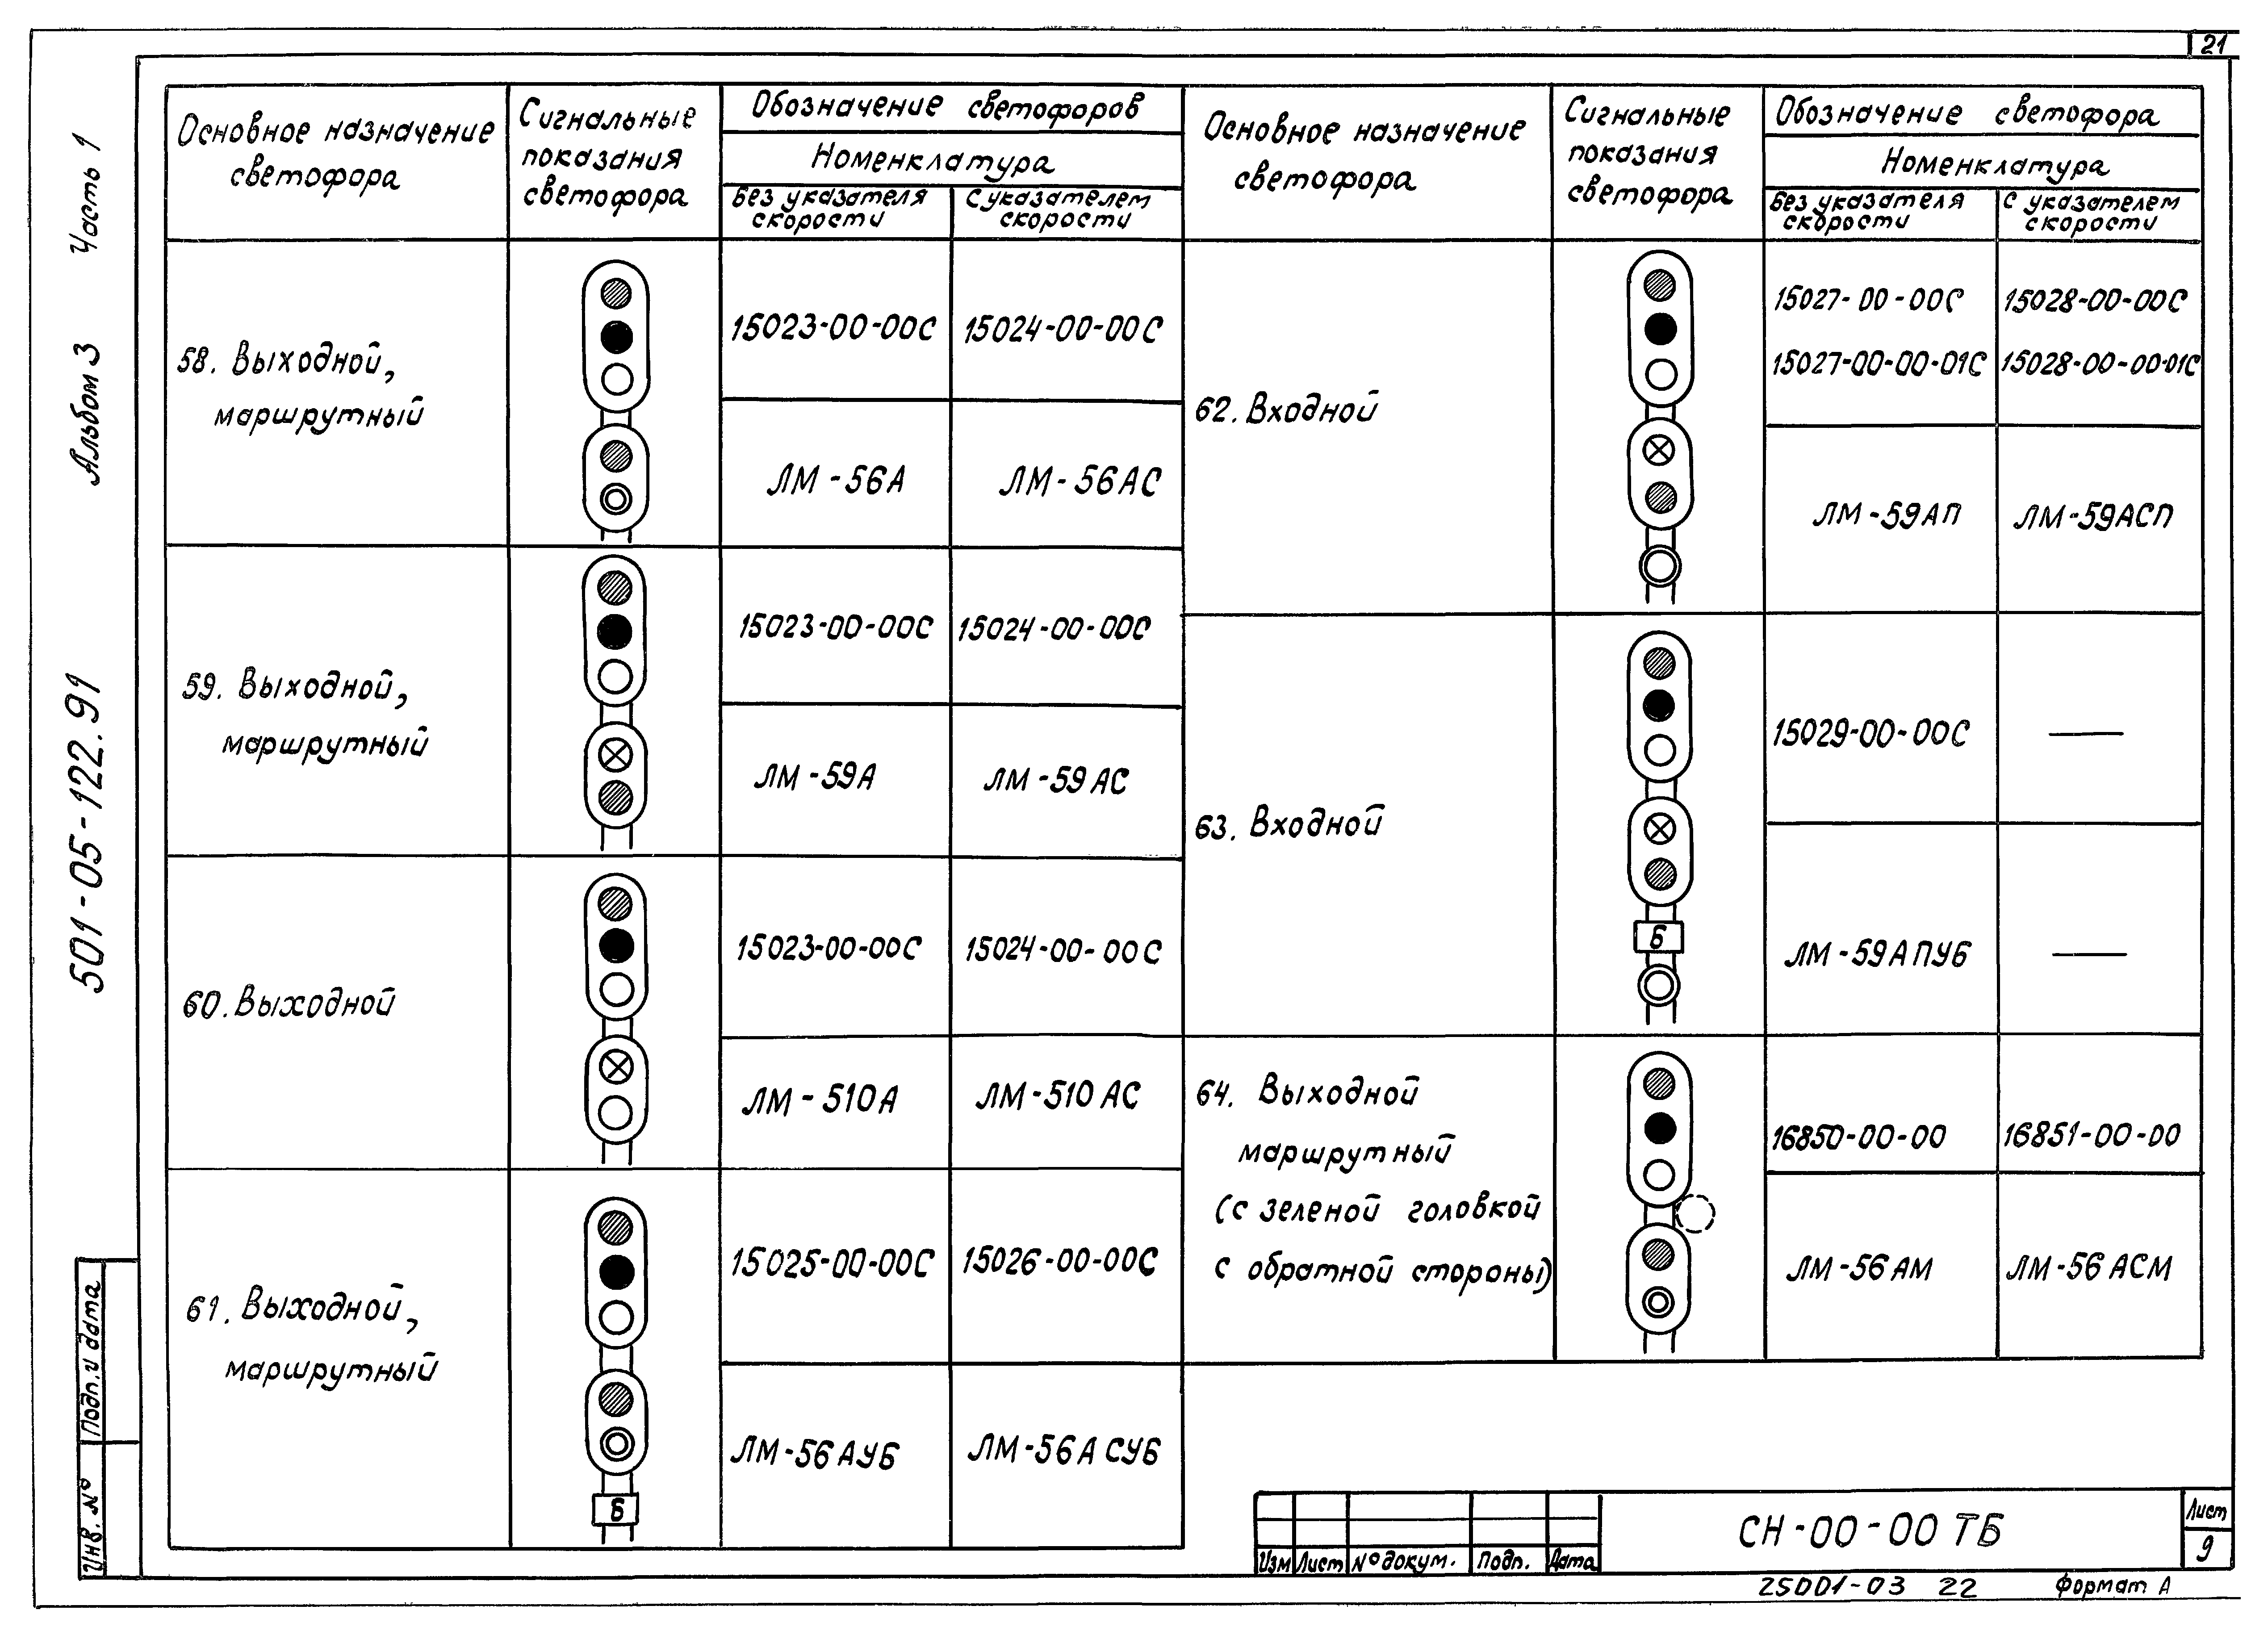 21
Часть 1
Альбом 3
501-05-122.91
Подп. и дата
Инв. №
Основное назначение
светофора
Сигнальные
показания
светофора
Обозначение светофоров
Номенклатура
Без указателя
скорости
С указателем
скорости
58. Выходной,
маршрутный
15023-00-00С
15024-00-00С
ЛМ-56А
ЛМ-56АС
59. Выходной,
маршрутный
15023-00-00С
15024-00-00С
ЛМ-59А
ЛМ-59АС
60. Выходной
15023-00-00С
15024-00-00С
ЛМ-510А
ЛМ-510АС
61. Выходной,
маршрутный
Б
15025-00-00С
15026-00-00С
ЛМ-56АУБ
ЛМ-56АСУБ
Основное назначение
светофора
Сигнальные
показания
светофора
Обозначение светофора
Номенклатура
Без указателя
скорости
С указателем
скорости
62. Входной
15027-00-00С
15028-00-00С
15027-00-00-01С
15028-00-00-01С
ЛМ-59АП
ЛМ-59АСП
63. Входной
Б
15029-00-00С
—
ЛМ-59АПУБ
—
64. Выходной
маршрутный
(с зеленой головкой
с обратной стороны)
16850-00-00
16851-00-00
ЛМ-56АМ
ЛМ-56АСМ
Изм Лист № докум. Подп. Дата
СН-00-00 ТБ
Лист
9
25001-03 22
Формат А